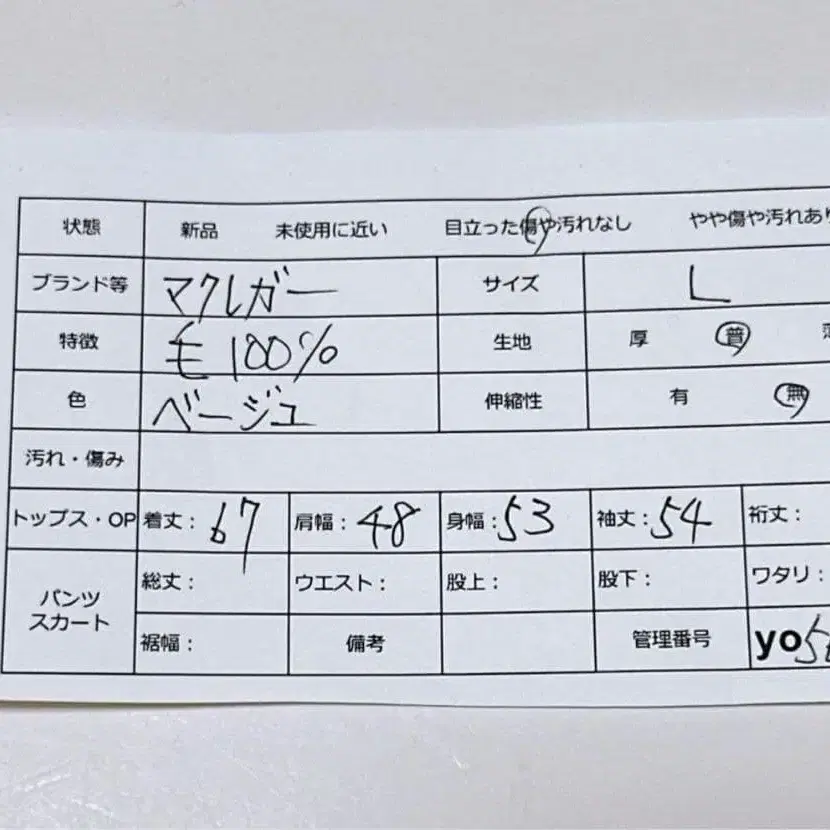 状態 新品 未使用に近い 目立った傷や汚れなし やや傷や汚れあり
ブランド等 マクレガー サイズ L
特徴 毛100% 生地 厚 普
色 ベージュ 伸縮性 有 無
汚れ・傷み
トップス・OP 着丈: 67 肩幅: 48 身幅: 53 袖丈: 54 裄丈:
パンツ スカート 総丈: ウエスト: 股上: 股下: ワタリ:
裾幅: 備考 管理番号 yo5